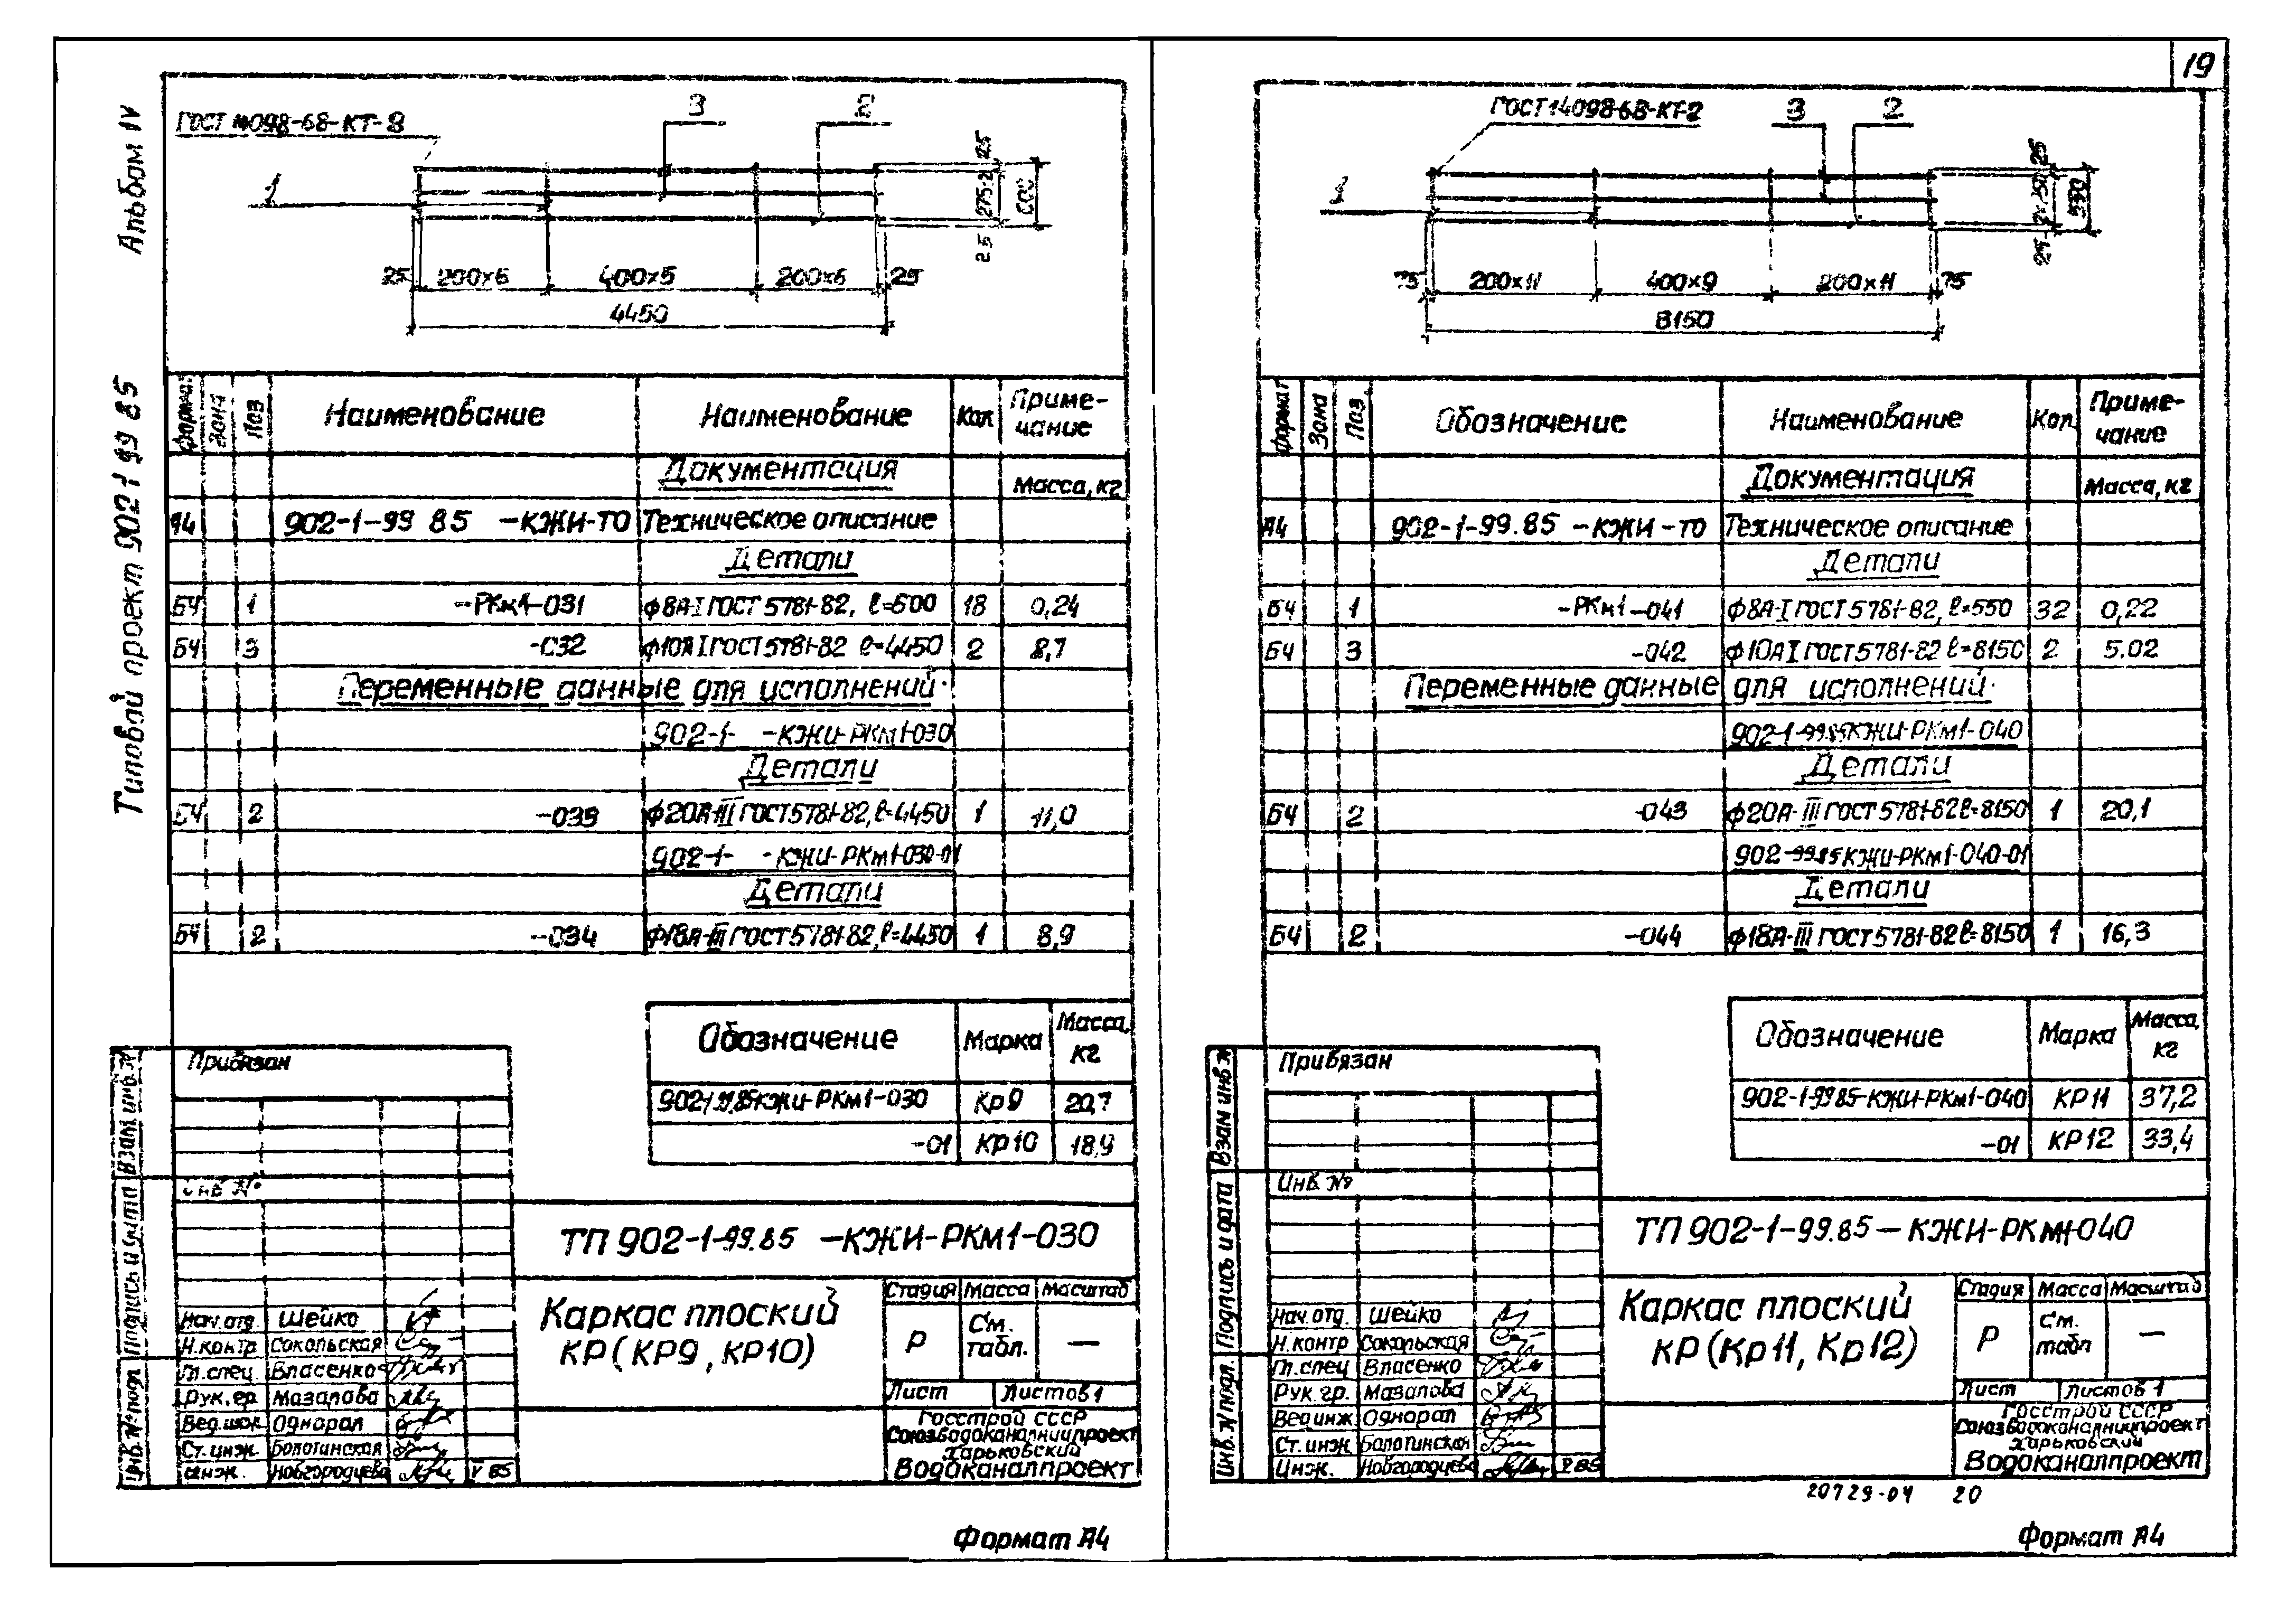 19
Альбом IV
Типовой проект 902 1 99 85
ГОСТ 14098-68-КТ-2
3
2
1
25
275×2
25
600
25
200×6
400×5
200×6
25
4450
Формат
Зона
Поз
Наименование
Наименование
Кол
Приме-
чание
Документация
Масса, кг
А4
902-1-99 85 -КЖИ-ТО
Техническое описание
Детали
БЧ 1 -РКм1-031 ф8А-I ГОСТ 5781-82, ℓ=600 18 0,24
БЧ 3 -032 ф10А I ГОСТ 5781-82 ℓ=4450 2 8,7
Переменные данные для исполнений
902-1- -КЖИ-РКм1-030
Детали
БЧ 2 -033 ф20А-III ГОСТ 5781-82, ℓ=4450 1 11,0
902-1- -КЖИ-РКм1-030-01
Детали
БЧ 2 -034 ф18А-III ГОСТ 5781-82, ℓ=4450 1 8,9
Обозначение Марка Масса,
кг
902-1-99.85КЖИ-РКм1-030 Кр9 20,7
-01 Кр10 18,9
Привязан
Инв №
Взам инв. №
Подпись и дата
Инв. № подл.
ТП 902-1-99.85 -КЖИ-РКм1-030
Каркас плоский
КР (КР9, КР10)
Стадия Масса Масштаб
Р См.
табл. —
Лист Листов 1
Госстрой СССР
Союзводоканалниипроект
Харьковский
Водоканалпроект
Нач. отд. Шейко
Н. контр Сокольская
Гл. спец. Власенко
Рук. гр. Мазалова
Вед. инж. Однорал
Ст. инж. Болотинская
Инж. Новгородцева V 85
Формат А4
ГОСТ 14098-68-КТ-2
3
2
1
25
2×250
25
550
75
200×11
400×9
200×11
75
8150
Формат
Зона
Поз
Обозначение
Наименование
Кол
Приме-
чание
Документация
Масса, кг
А4
902-1-99.85 -КЖИ-ТО
Техническое описание
Детали
БЧ 1 -РКм1-041 ф8А-I ГОСТ 5781-82, ℓ=550 32 0,22
БЧ 3 -042 ф10А I ГОСТ 5781-82 ℓ=8150 2 5.02
Переменные данные для исполнений
902-1-99.85КЖИ-РКм1-040
Детали
БЧ 2 -043 ф20А-III ГОСТ 5781-82 ℓ=8150 1 20,1
902-99.85КЖИ-РКм1-040-01
Детали
БЧ 2 -044 ф18А-III ГОСТ 5781-82 ℓ=8150 1 16,3
Обозначение Марка Масса,
кг
902-1-99 85-КЖИ-РКм1-040 КР11 37,2
-01 КР12 33,4
Привязан
Инв. №
Взам инв №
Подпись и дата
Инв. № подл.
ТП 902-1-99.85-КЖИ-РКм1-040
Каркас плоский
КР (Кр11, Кр12)
Стадия Масса Масштаб
Р См.
табл —
Лист Листов 1
Госстрой СССР
Союзводоканалниипроект
Харьковский
Водоканалпроект
Нач. отд. Шейко
Н. контр Сокольская
Гл. спец Власенко
Рук. гр. Мазалова
Вед инж Однорал
Ст. инж Болотинская
Инж. Новгородцева V 85
20729-04 20
Формат А4